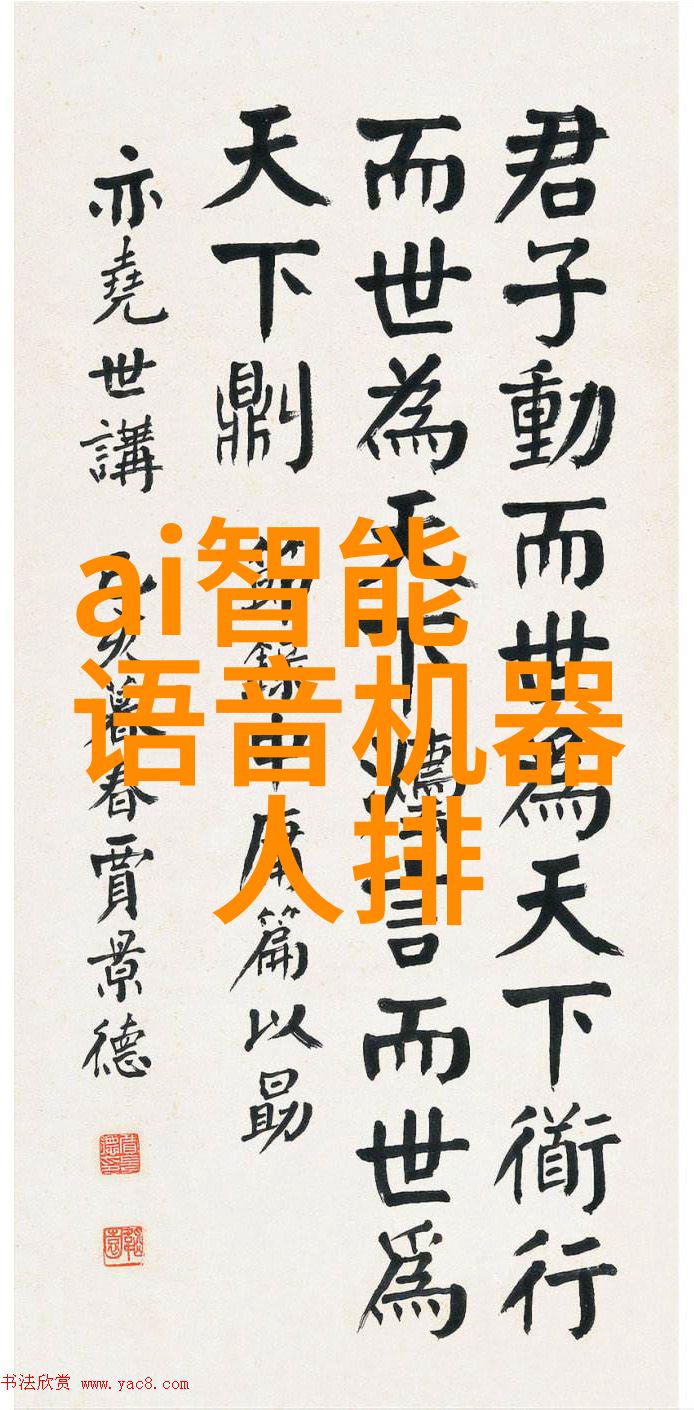 君子動而世為天下衜行
而世為天下灋言而世為
天下𠟭
節錄中庸篇以勗
亦堯世講 亥暮春賈景德
ai智能
语音机器
人排
书法欣赏 www.yac8.com